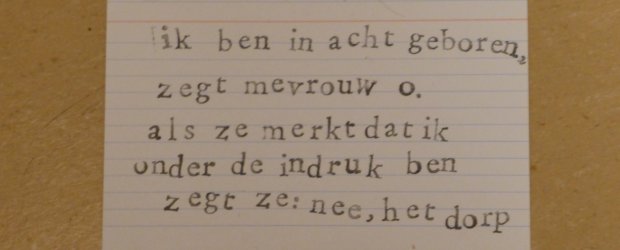 ik ben in acht geboren,
zegt mevrouw o.
als ze merkt dat ik
onder de indruk ben
zegt ze: nee, het dorp